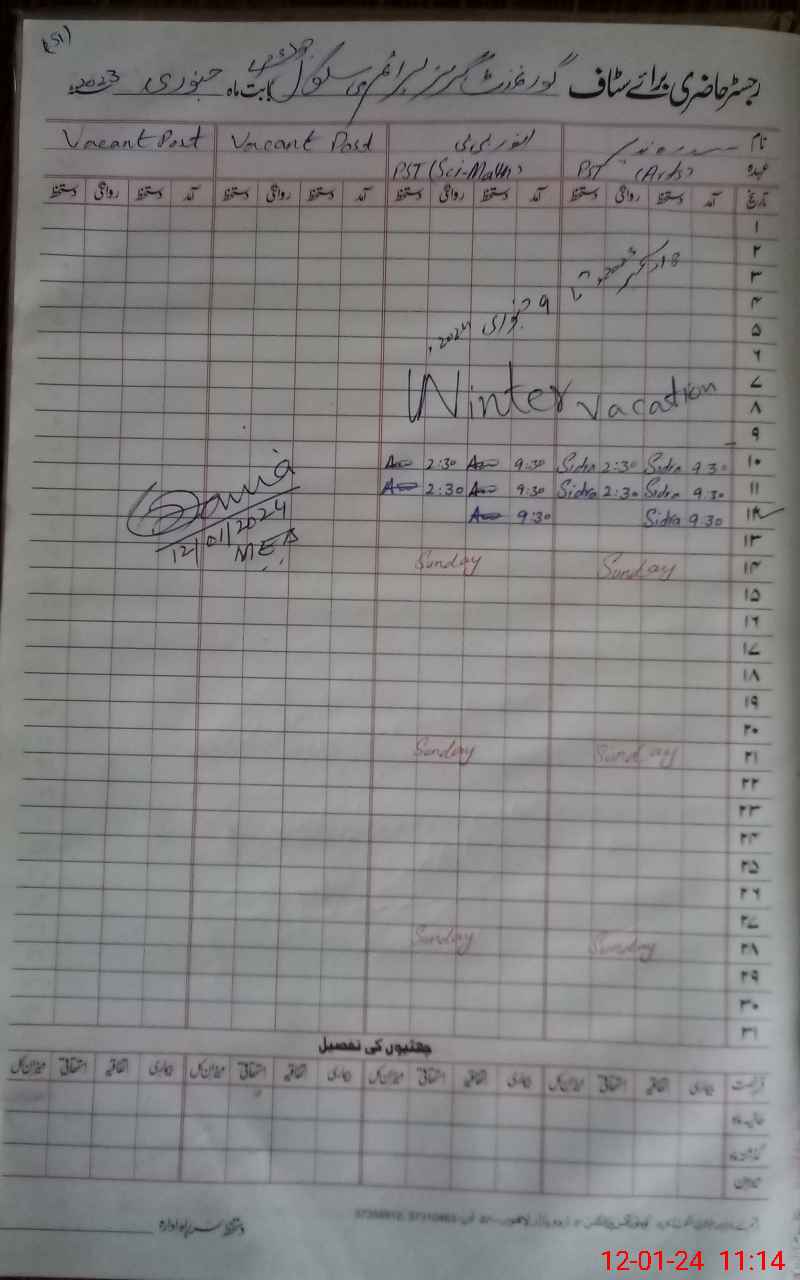 (51)
رجسٹر حاضری برائے سٹاف گورنمنٹ گرلز پرائمری سکول بابت ماہ جنوری 2023ء
نام Vacant Post Vacant Post
عہدہ PST (Arts) PST (Sci-Math)
تاریخ آمد دستخط روانگی دستخط آمد دستخط روانگی دستخط آمد دستخط روانگی دستخط آمد دستخط روانگی دستخط
۱
۲
۳
۴
۵ 9 جنوری 2024ء
۶
۷
۸ Winter Vacation
۹
۱۰ 9:30 Sidra 2:30 Sidra 9:30 2:30
۱۱ 9:30 Sidra 2:30 Sidra 9:30 2:30
۱۲ 9:30 Sidra 9:30
12/01/2024
MEA
۱۳
۱۴ Sunday Sunday
۱۵
۱۶
۱۷
۱۸
۱۹
۲۰
۲۱ Sunday Sunday
۲۲
۲۳
۲۴
۲۵
۲۶
۲۷
۲۸ Sunday Sunday
۲۹
۳۰
۳۱
چھٹیوں کی تفصیل
رخصت بیماری اتفاقیہ استحقاقی میزان کل بیماری اتفاقیہ استحقاقی میزان کل بیماری اتفاقیہ استحقاقی میزان کل بیماری اتفاقیہ استحقاقی میزان کل
حالیہ ماہ
گذشتہ ماہ
میزان
دستخط سربراہ ادارہ
12-01-24 11:14